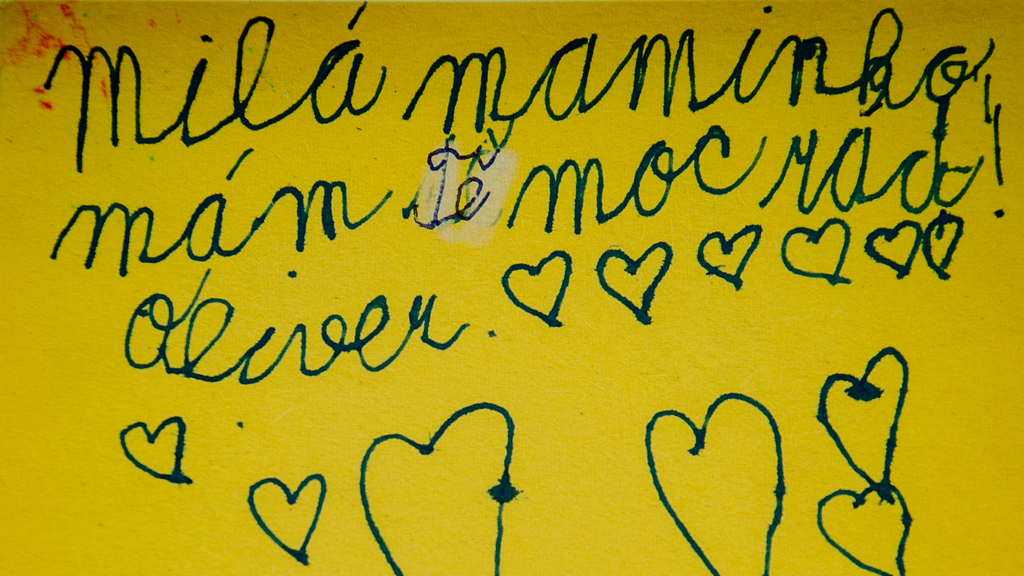 Milá maminko,
mám Tě moc rád!
Oliver.